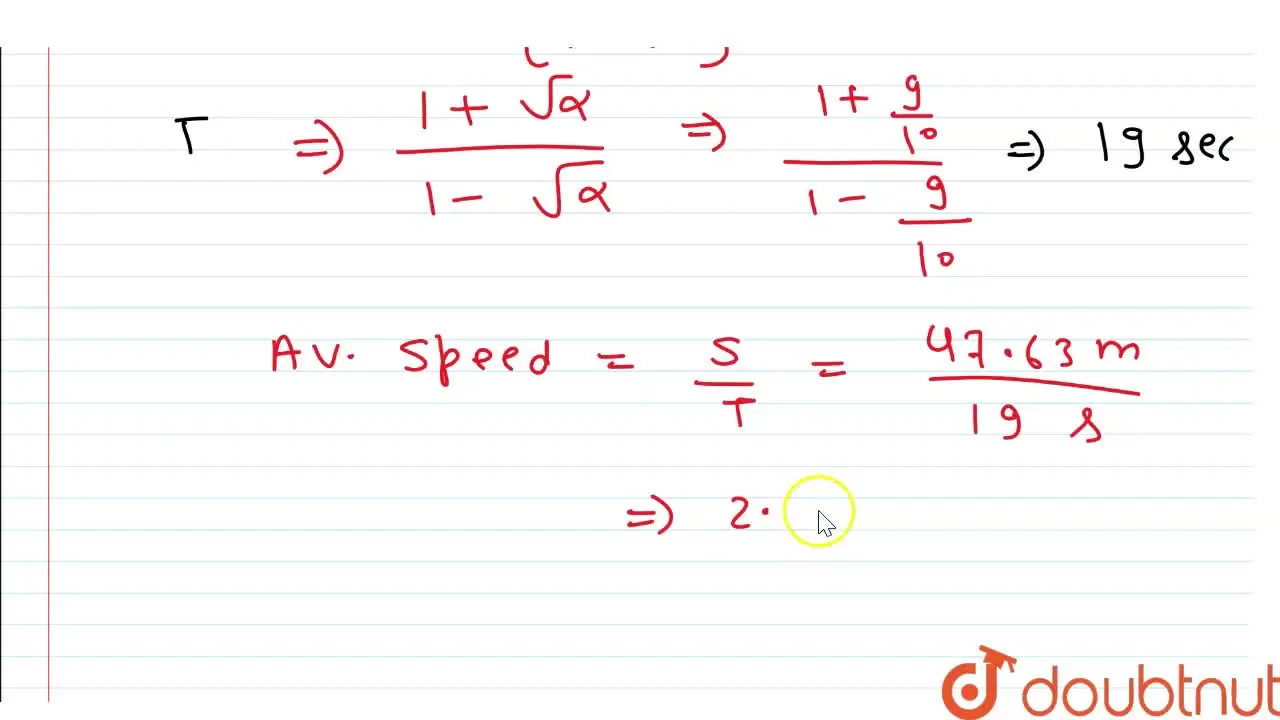 T ⇒ (1 + √α)/(1 - √α) ⇒ (1 + 9/10)/(1 - 9/10) ⇒ 19 sec
Av. speed = S/T = 47.63 m/19 s
⇒ 2.
doubtnut